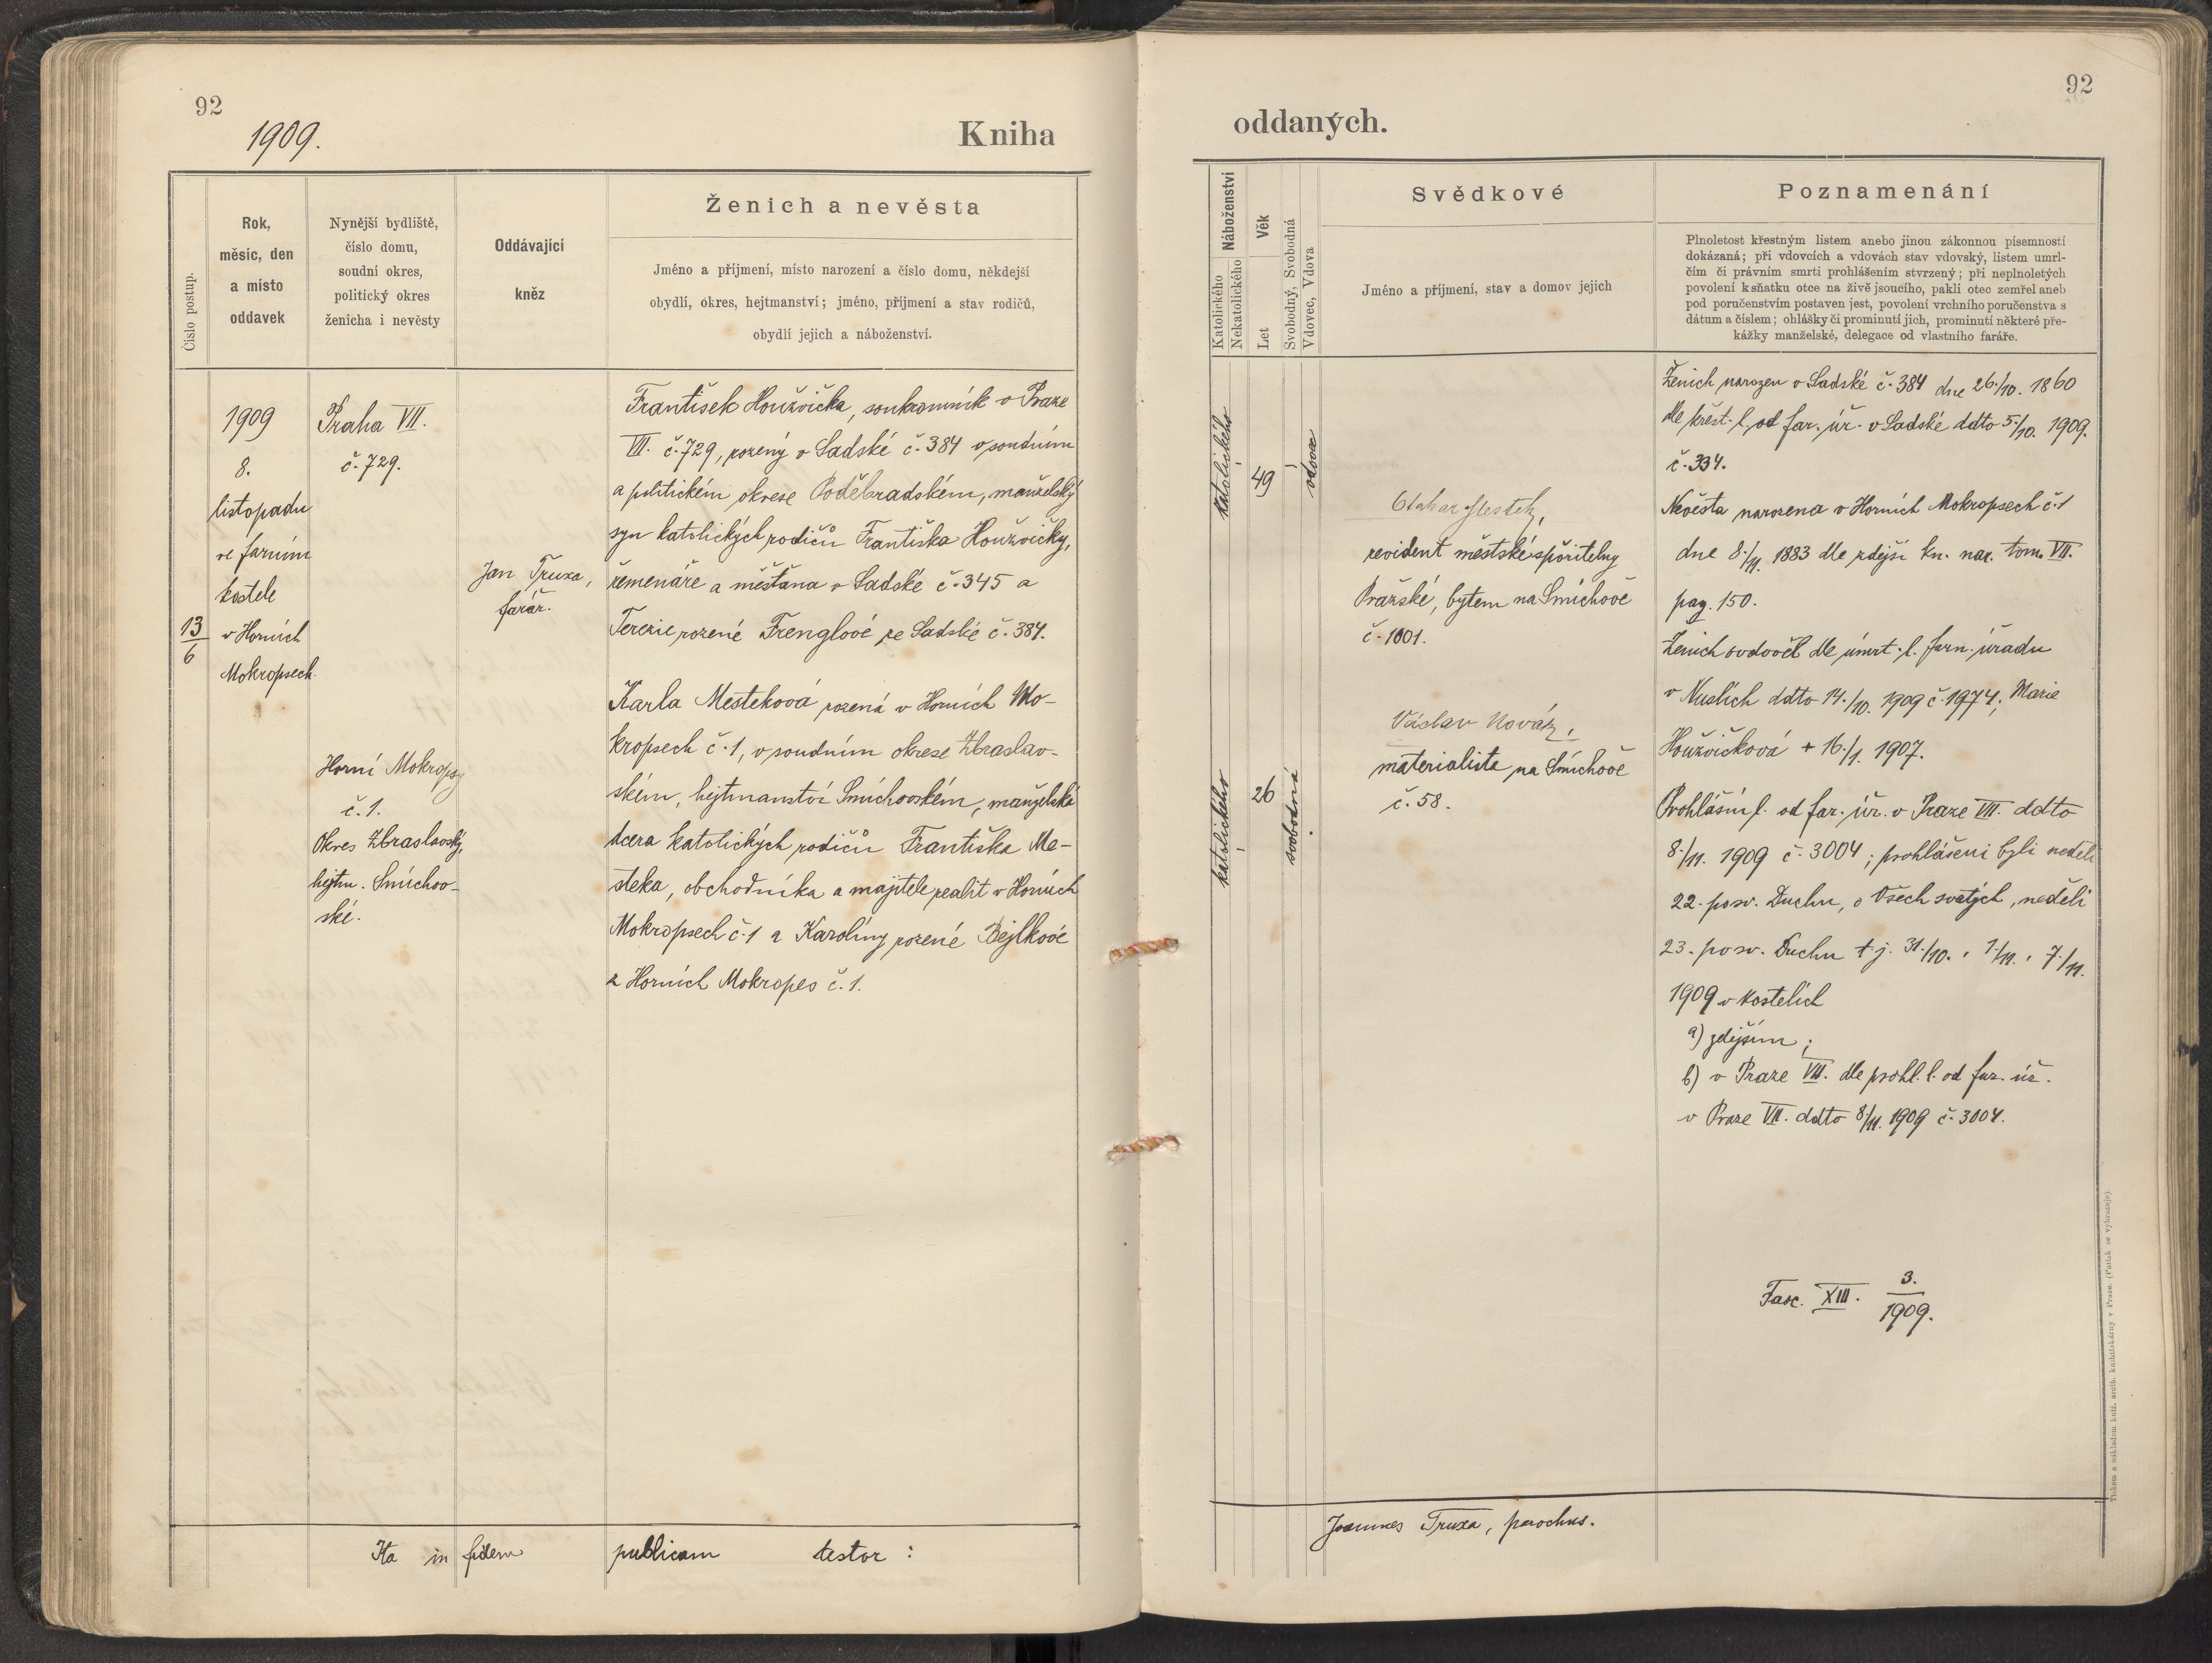 92
1909.
Kniha
Číslo postup.
Rok,
měsíc, den
a místo
oddavek
Nynější bydliště,
číslo domu,
soudní okres,
politický okres
ženicha i nevěsty
Oddávající
kněz
Ženich a nevěsta
Jméno a příjmení, místo narození a číslo domu, někdejší
obydlí, okres, hejtmanství; jméno, příjmení a stav rodičů,
obydlí jejich a náboženství.
13
6
1909
8.
listopadu
ve farním
kostele
v Horních
Mokropsech.
Praha VII.
č. 729.
Horní Mokropsy
č. 1.
Okres Zbraslavský,
hejtm. Smíchov-
ské.
Jan Truxa,
farář.
František Houžvička, soukromník v Praze
VII. č. 729, rozený v Sadské č. 384 v soudním
a politickém okrese Poděbradském, manželský
syn katolických rodičů Františka Houžvičky,
řemenáře a měšťana v Sadské č. 345 a
Terezie rozené Frenglové ze Sadské č. 384.
Karla Mesteková rozená v Horních Mo-
kropsech č. 1, v soudním okrese Zbraslav-
ském, hejtmanství Smíchovském, manželská
dcera katolických rodičů Františka Me-
steka, obchodníka a majitele realit v Horních
Mokropsech č. 1 a Karolíny rozené Bejlkové
z Horních Mokropes č. 1.
Ita in fidem publicam testor:
92
oddaných.
Náboženství
Katolického
Nekatolického
Věk
Let
Svobodný, Svobodná
Vdovec, Vdova
Svědkové
Jméno a příjmení, stav a domov jejich
Poznamenání
Plnoletost křestným listem anebo jinou zákonnou písemností
dokázaná; při vdovcích a vdovách stav vdovský, listem umrl-
čím či právním smrti prohlášením stvrzený; při neplnoletých
povolení k sňatku otce na živě jsoucího, pakli otec zemřel aneb
pod poručenstvím postaven jest, povolení vrchního poručenstva s
dátum a číslem; ohlášky či prominutí jich, prominutí některé pře-
kážky manželské, delegace od vlastního faráře.
katolického
49
vdovec
katolického
26
svobodná
Otakar Mestek,
revident městské spořitelny
Pražské, bytem na Smíchově
č. 1001.
Václav Novák,
materialista na Smíchově
č. 58.
Ženich narozen v Sadské č. 384 dne 26./10. 1860
dle křest. l. od far. úř. v Sadské ddto 5./10. 1909.
č. 334.
Nevěsta narozena v Horních Mokropsech č. 1
dne 8./11. 1883 dle zdejší kn. nar. tom. VII.
pag. 150.
Ženich ovdověl dle úmrt. l. farn. úřadu
v Nuslích ddto 14./10. 1909 č. 1974; Marie
Houžvičková + 16./1. 1907.
Prohlášní l. od far. úř. v Praze VII. ddto
8./11. 1909 č. 3004; prohlášeni byli neděli
22. posv. Duchu, o Všech svatých, neděli
23. po sv. Duchu t. j. 31./10., 1./11., 7./11.
1909 v kostelích
a) zdejším;
b) v Praze VII. dle prohl. l. od far. úř.
v Praze VII. ddto 8/11. 1909 č. 3004.
Fasc. XIII. 3.
1909.
Joannes Truxa, parochus.
Tiskem a nákladem kníž. arcib. knihtiskárny v Praze. (Patisk se vyhrazuje).